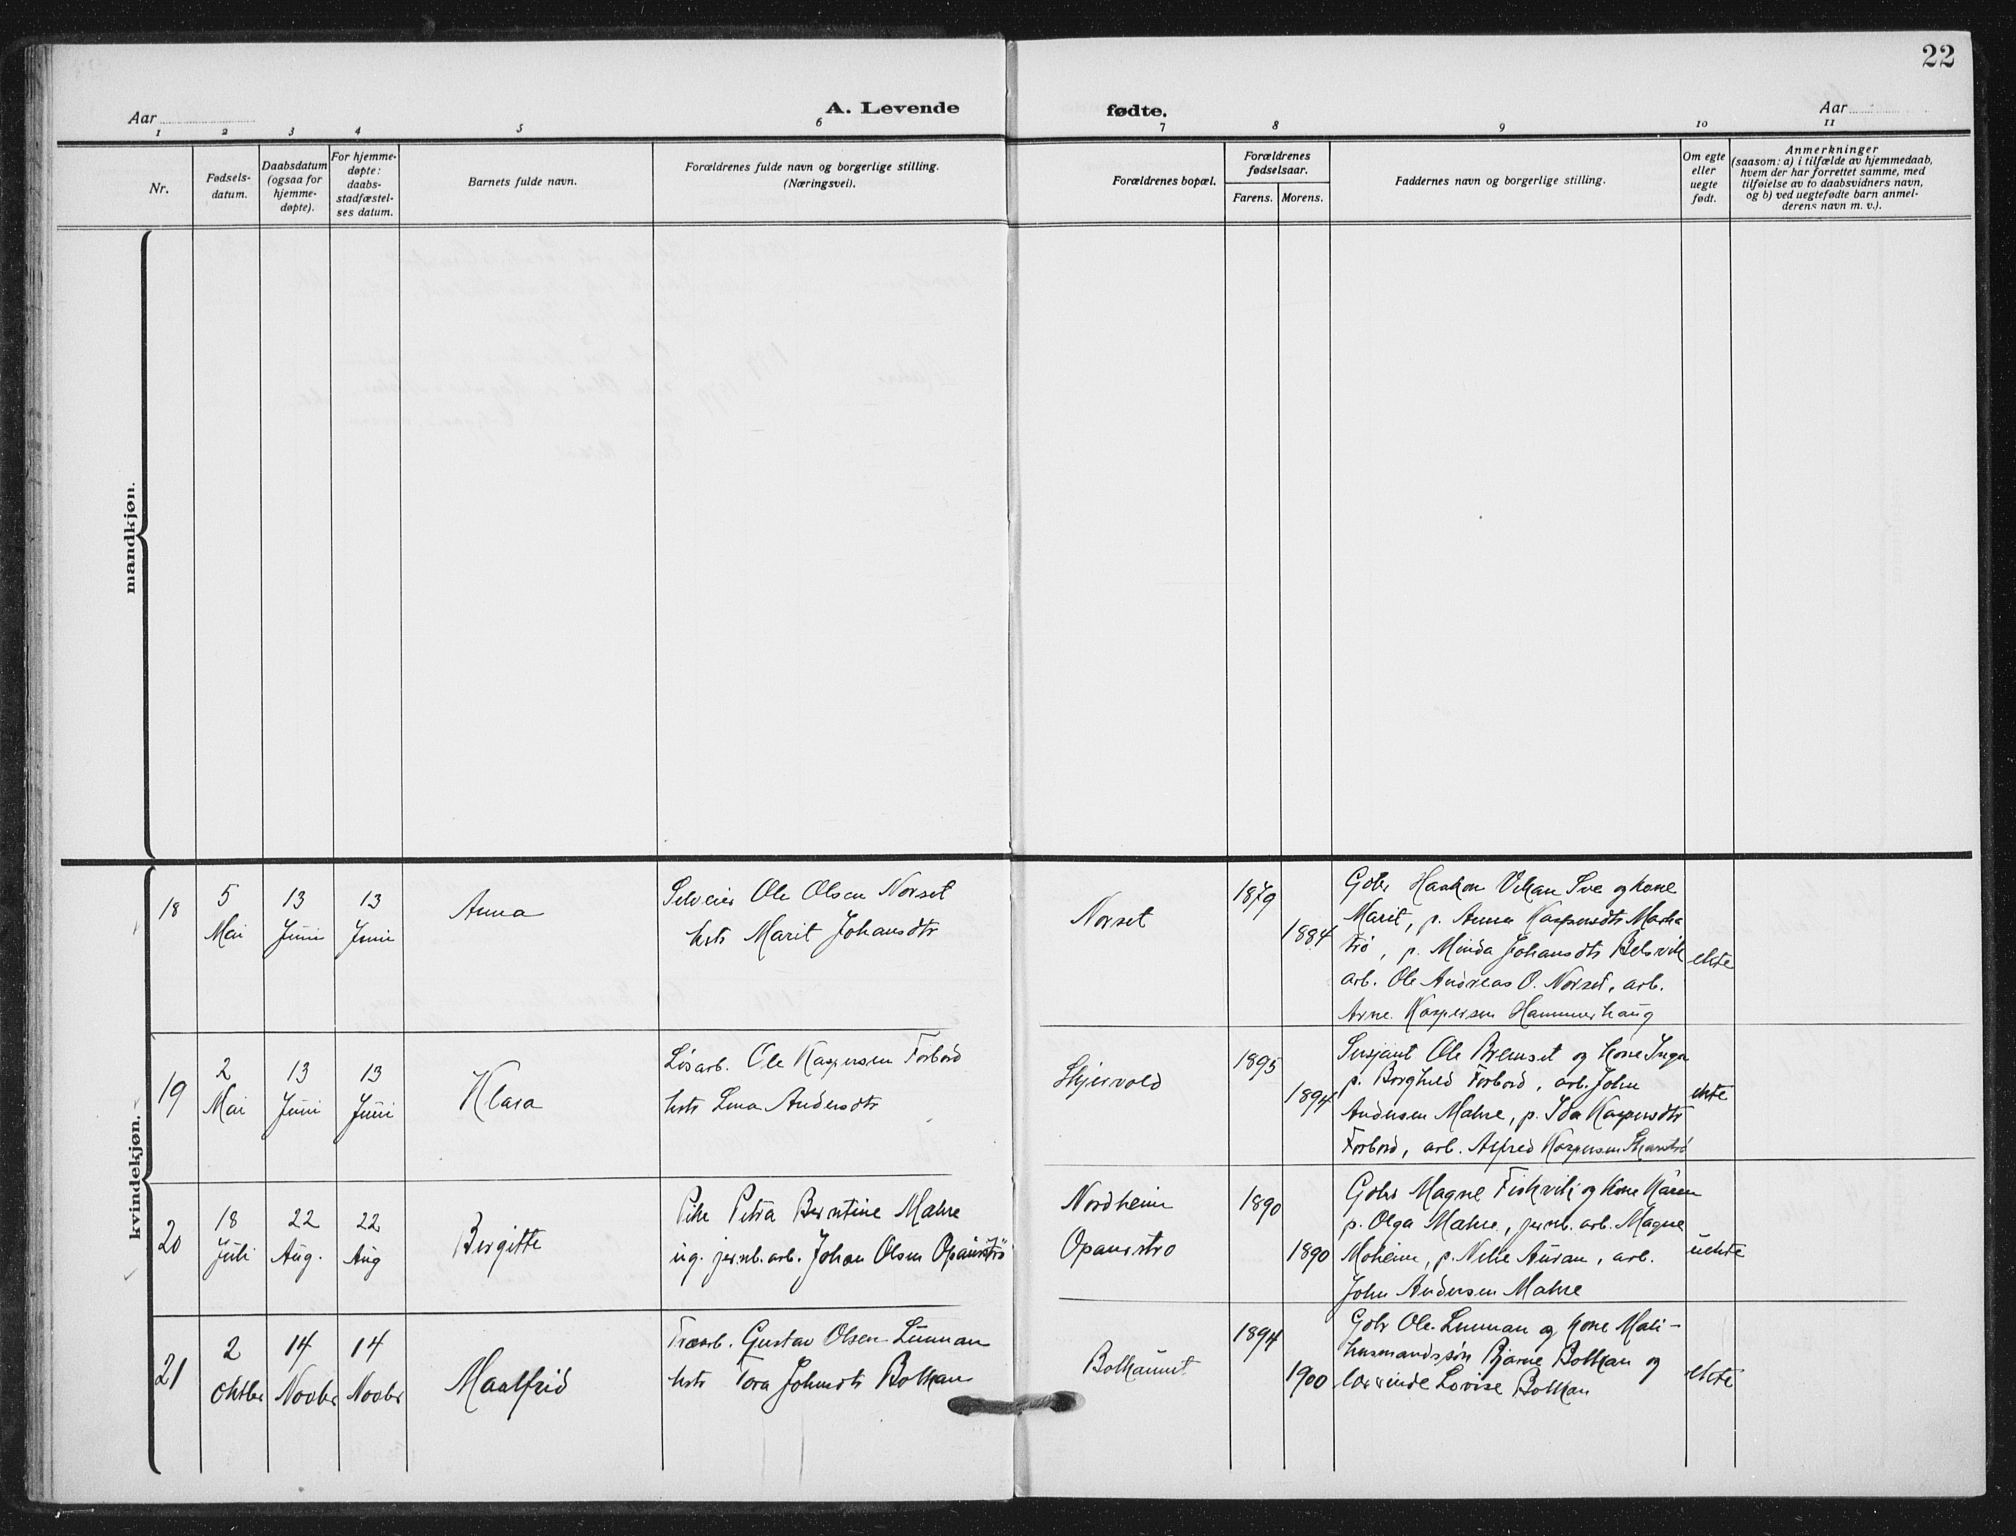 22
Aar
A. Levende
fødte.
Aar
1 2 3 4 5 6 7 8 9 10 11
Nr.
Fødsels-
datum.
Daabsdatum
(ogsaa for
hjemme-
døpte).
For hjemme-
døpte:
daabs-
stadfæstel-
ses datum.
Barnets fulde navn.
Forældrenes fulde navn og borgerlige stilling.
(Næringsvei).
Forældrenes bopæl.
Forældrenes
fødselsaar.
Farens. Morens.
Faddernes navn og borgerlige stilling.
Om egte
eller
uegte
født.
Anmerkninger
(saasom: a) i tilfælde av hjemmedaab,
hvem der har forrettet samme, med
tilføielse av to daabsvidners navn,
og b) ved uegtefødte barn anmel-
derens navn m. v.).
mandkjøn.
kvindekjøn.
18
5
Mai
13
Juni
13
Juni
Anna
Selveier Ole Olsen Norset
hstr Marit Johansdtr
Norset
1879
1884
Gbr Haakon Vikan Sve og kone
Marit, p. Anna Kaspersdtr
p. Minda Johansdtr Belsvik
arb. Ole Andreas O. Norset, arb.
Arne Kaspersen Hammerhaug
ekte
19
2
Mai
13
Juni
13
Juni
Klara
Løsarb. Ole Kaspersen Forbord
hstr Lina Andersdtr
Skjervold
1895
1894
Sersjant Ole Bremset og kone Inga
p. Borghild Forbord, arb. John
Andersen Mæhre, p. Ida Kaspersdtr
Forbord, arb. Alfred Kaspersen
ekte
20
18
Juli
22
Aug.
22
Aug
Birgitte
Pike Petra Berntine Mæhre
ug. jernb. arb. Johan Olsen Opanstrø
Nordheim
Opanstrø
1890
1890
Gbr Magne Fiskvik og kone Karen
p. Olga Mæhre, jernb. arb. Magne
Moheim, p. Nelie Auran, arb.
John Andersen Mæhre
uekte
21
2
oktbr
14
Novbr
14
Novbr
Maalfrid
Træarb. Gustav Olsen Lunnan
hstr Tora Johnsdtr Bolkan
Bolkaunet
1894
1900
Gbr Ole Lunnan og kone Mali -
husmandssøn Bjarne Bolkan og
lærerinde Lovise Bolkan
ekte